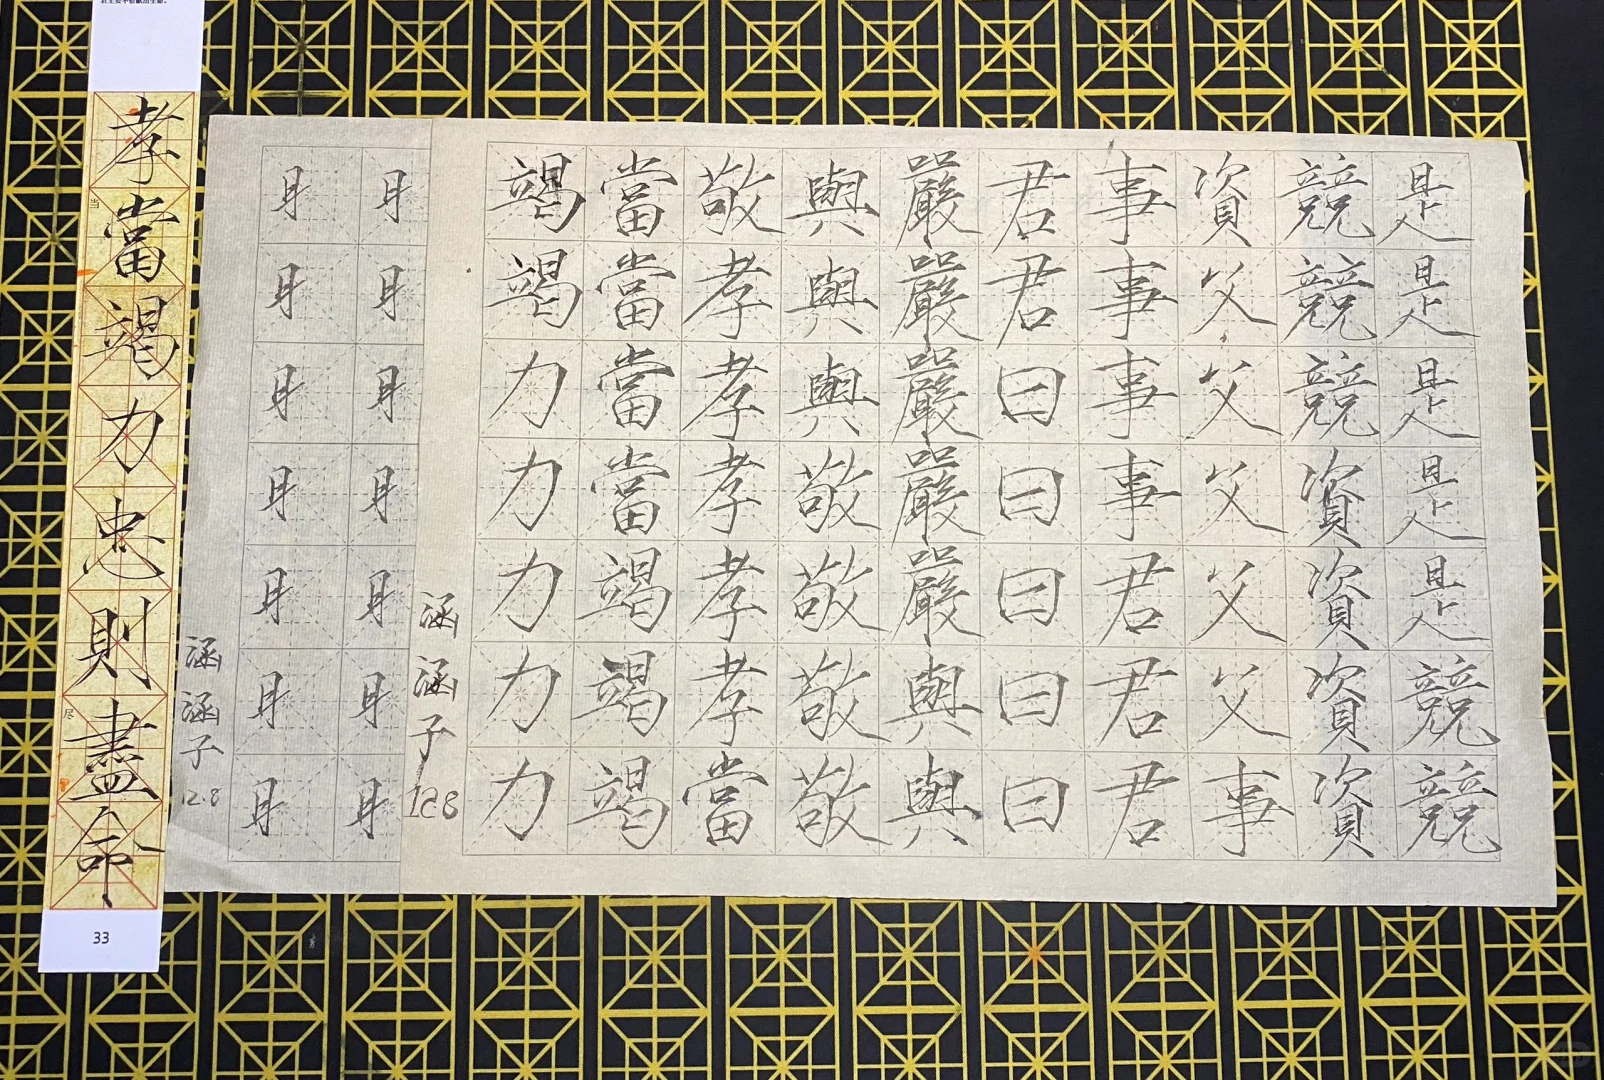 是是是是是競競
競競競資資資資
資父父父父父事
事事事事君君君
君君曰曰曰曰曰
嚴嚴嚴嚴嚴與與
與與與敬敬敬敬
敬孝孝孝孝孝當
當當當當竭竭竭
竭竭力力力力力
涵涵子 128
涵涵子 12.8
孝當竭力忠則盡命
当
尽
33